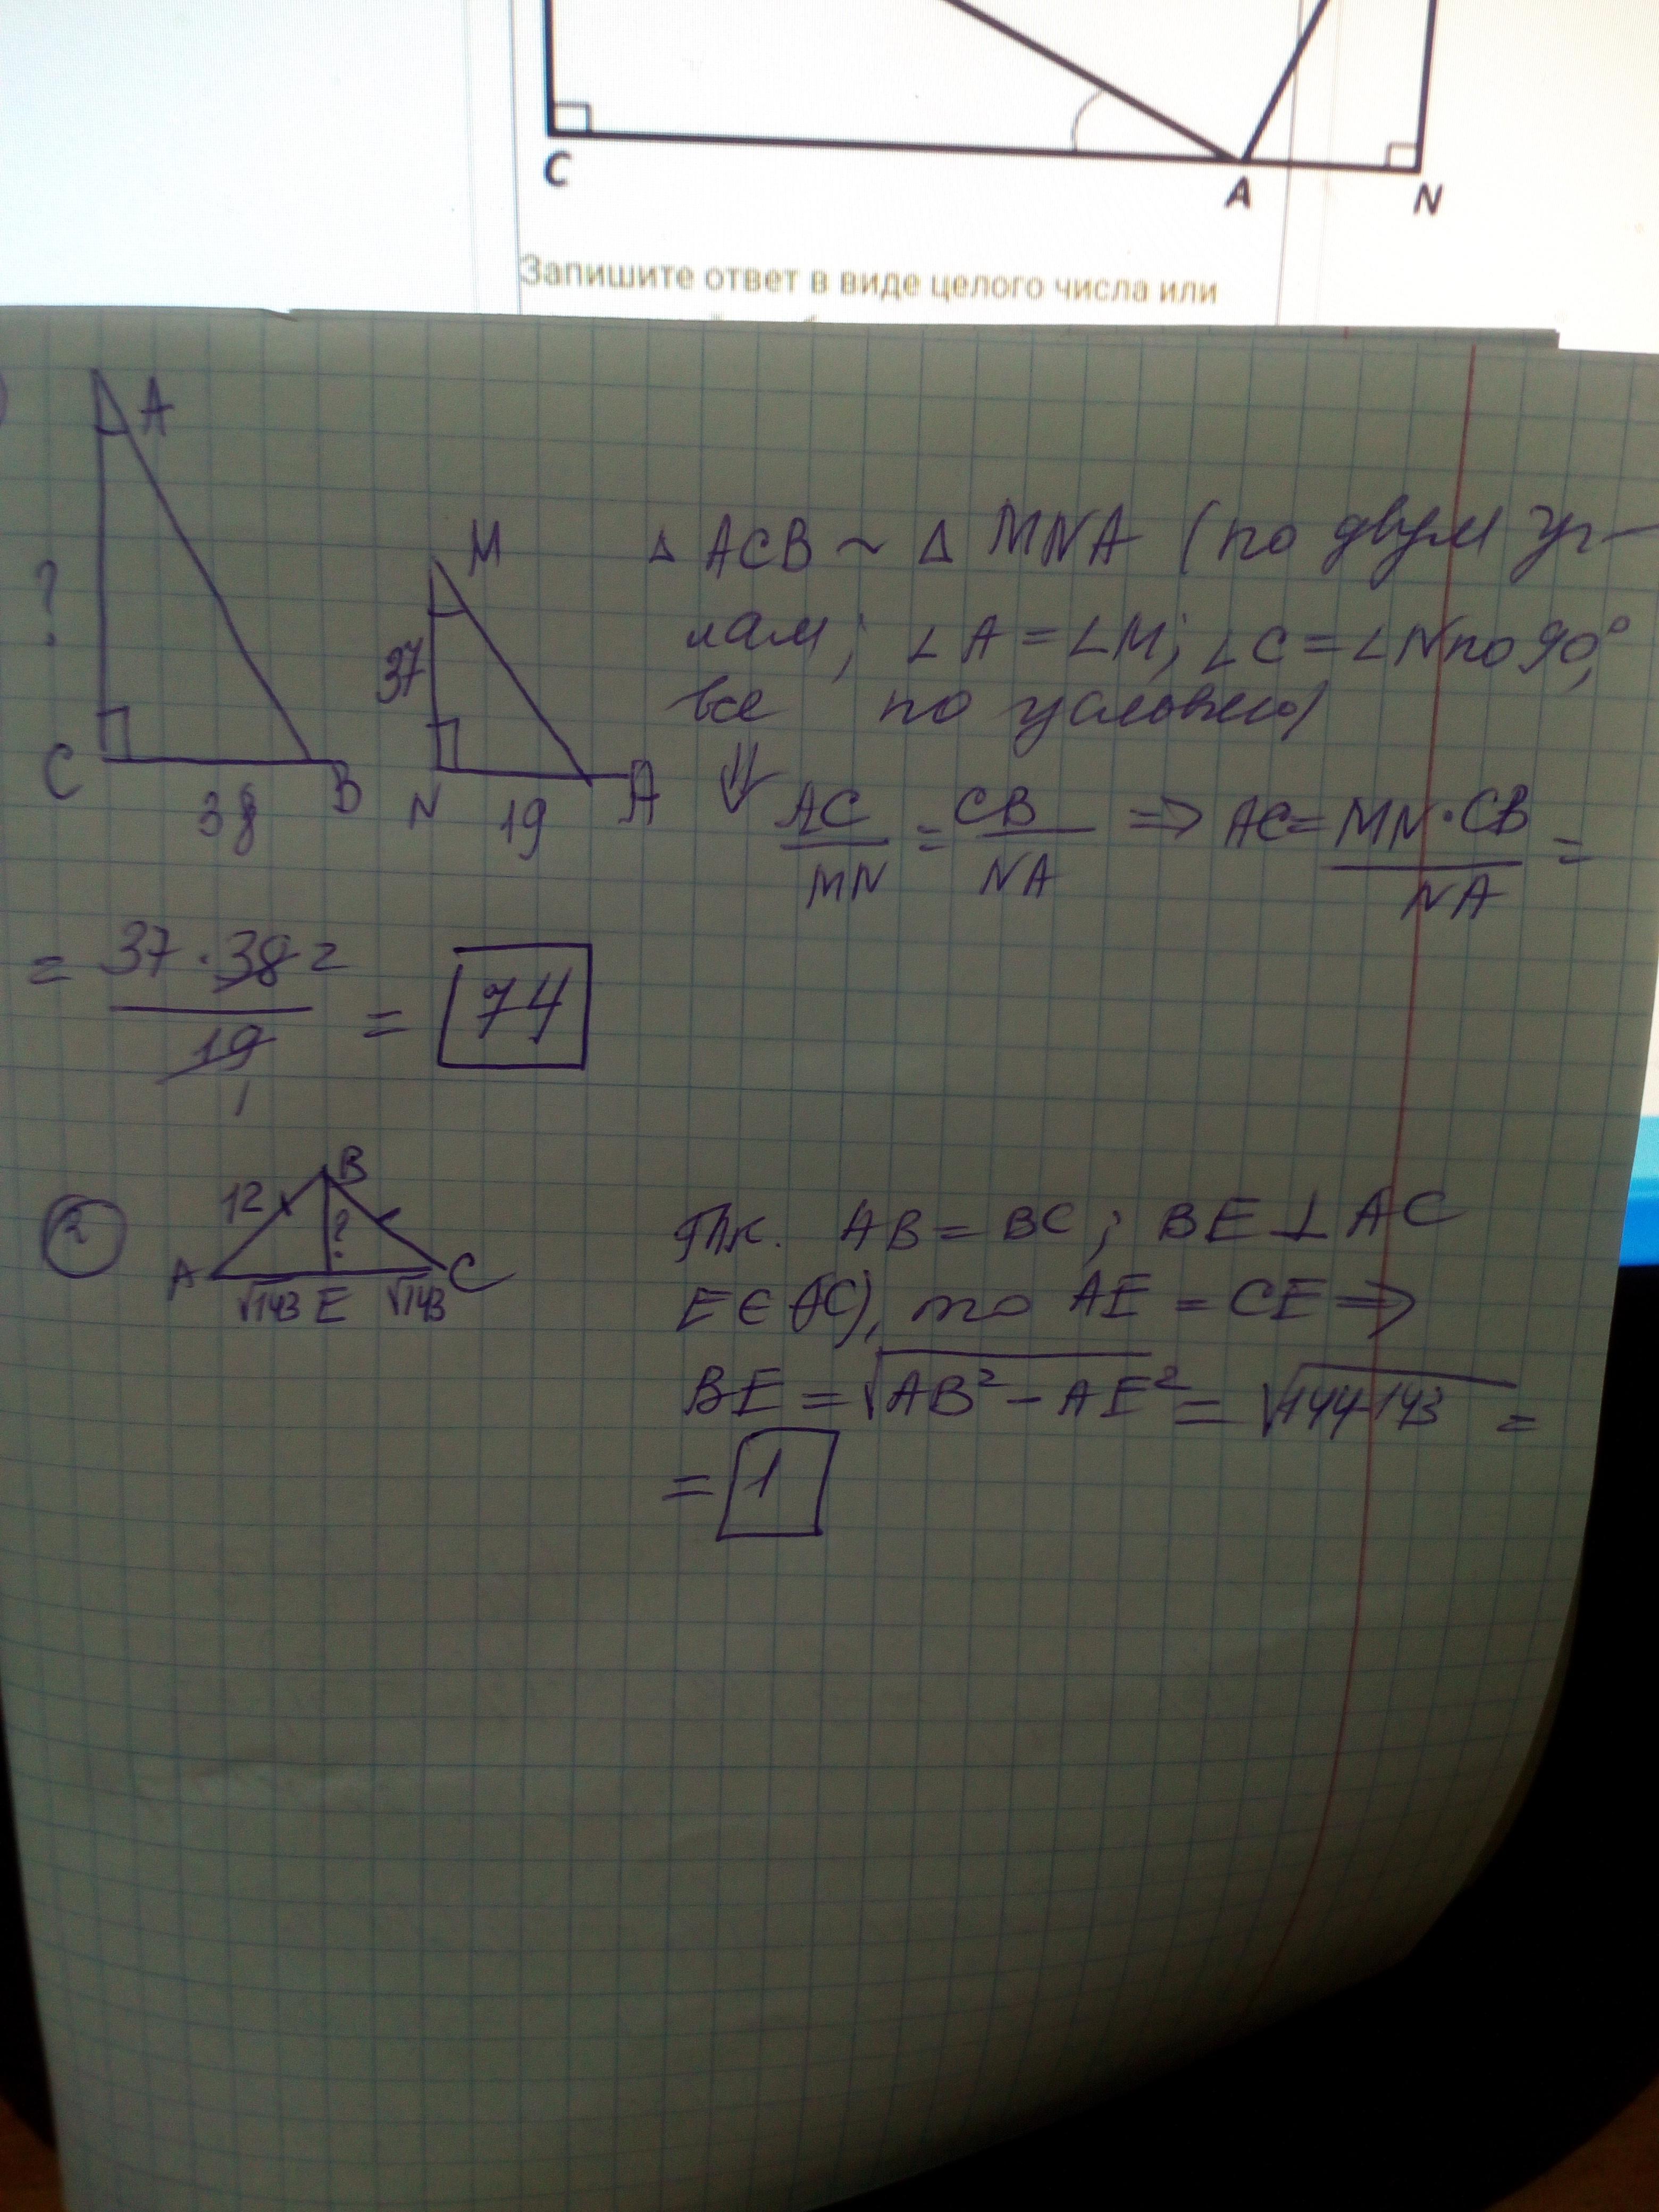 C
A
N
Запишите ответ в виде целого числа или
A
?
C
38
B
M
37
N
19
A
Δ ACB ~ Δ MNA (по двум уг-
лам; ∠A = ∠M; ∠C = ∠N по 90°,
все по условию)
⇓ AC/MN = CB/NA ⇒ AC = MN·CB/NA =
= 37·38 2/19 1 = 74
2
12
B
?
A
√143
E
√143
C
Т.к. AB = BC; BE ⊥ AC
E ∈ AC), то AE = CE ⇒
BE = √AB² - AE² = √144-143 =
= 1